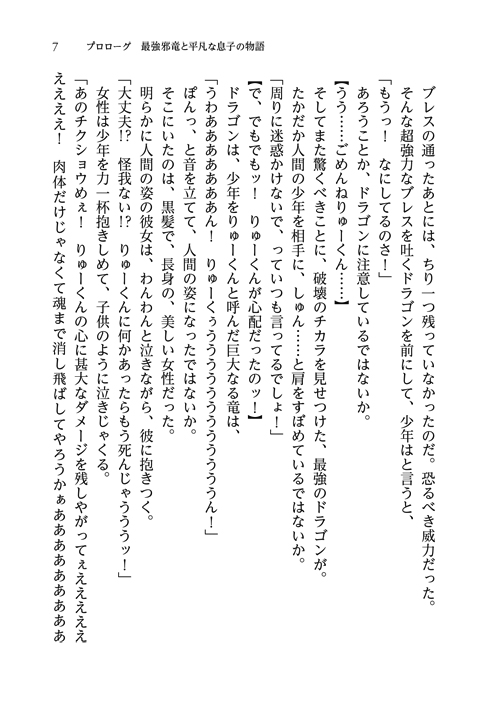 7　プロローグ　最強邪竜と平凡な息子の物語
ブレスの通ったあとには、ちり一つ残っていなかったのだ。恐るべき威力だった。
そんな超強力なブレスを吐くドラゴンを前にして、少年はと言うと、
「もうっ！　なにしてるのさ！」
あろうことか、ドラゴンに注意しているではないか。
【うう……ごめんねりゅーくん……】
そしてまた驚くべきことに、破壊のチカラを見せつけた、最強のドラゴンが。
たかだか人間の少年を相手に、しゅん……と肩をすぼめているではないか。
「周りに迷惑かけないで、っていつも言ってるでしょ！」
【で、でもでもッ！　りゅーくんが心配だったのッ！】
ドラゴンは、少年をりゅーくんと呼んだ巨大なる竜は、
「うわあああああああん！　りゅーくぅうううううううううううん！」
ぽんっ、と音を立てて、人間の姿になったではないか。
そこにいたのは、黒髪で、長身の、美しい女性だった。
明らかに人間の姿の彼女は、わんわんと泣きながら、彼に抱きつく。
「大丈夫!?　怪我ない!?　りゅーくんに何かあったらもう死んじゃうううッ！」
女性は少年を力一杯抱きしめて、子供のように泣きじゃくる。
「あのチクショウめぇ！　りゅーくんの心に甚大なダメージを残しやがってぇえええええ
ええええ！　肉体だけじゃなくて魂まで消し飛ばしてやろうかぁあああああああああ